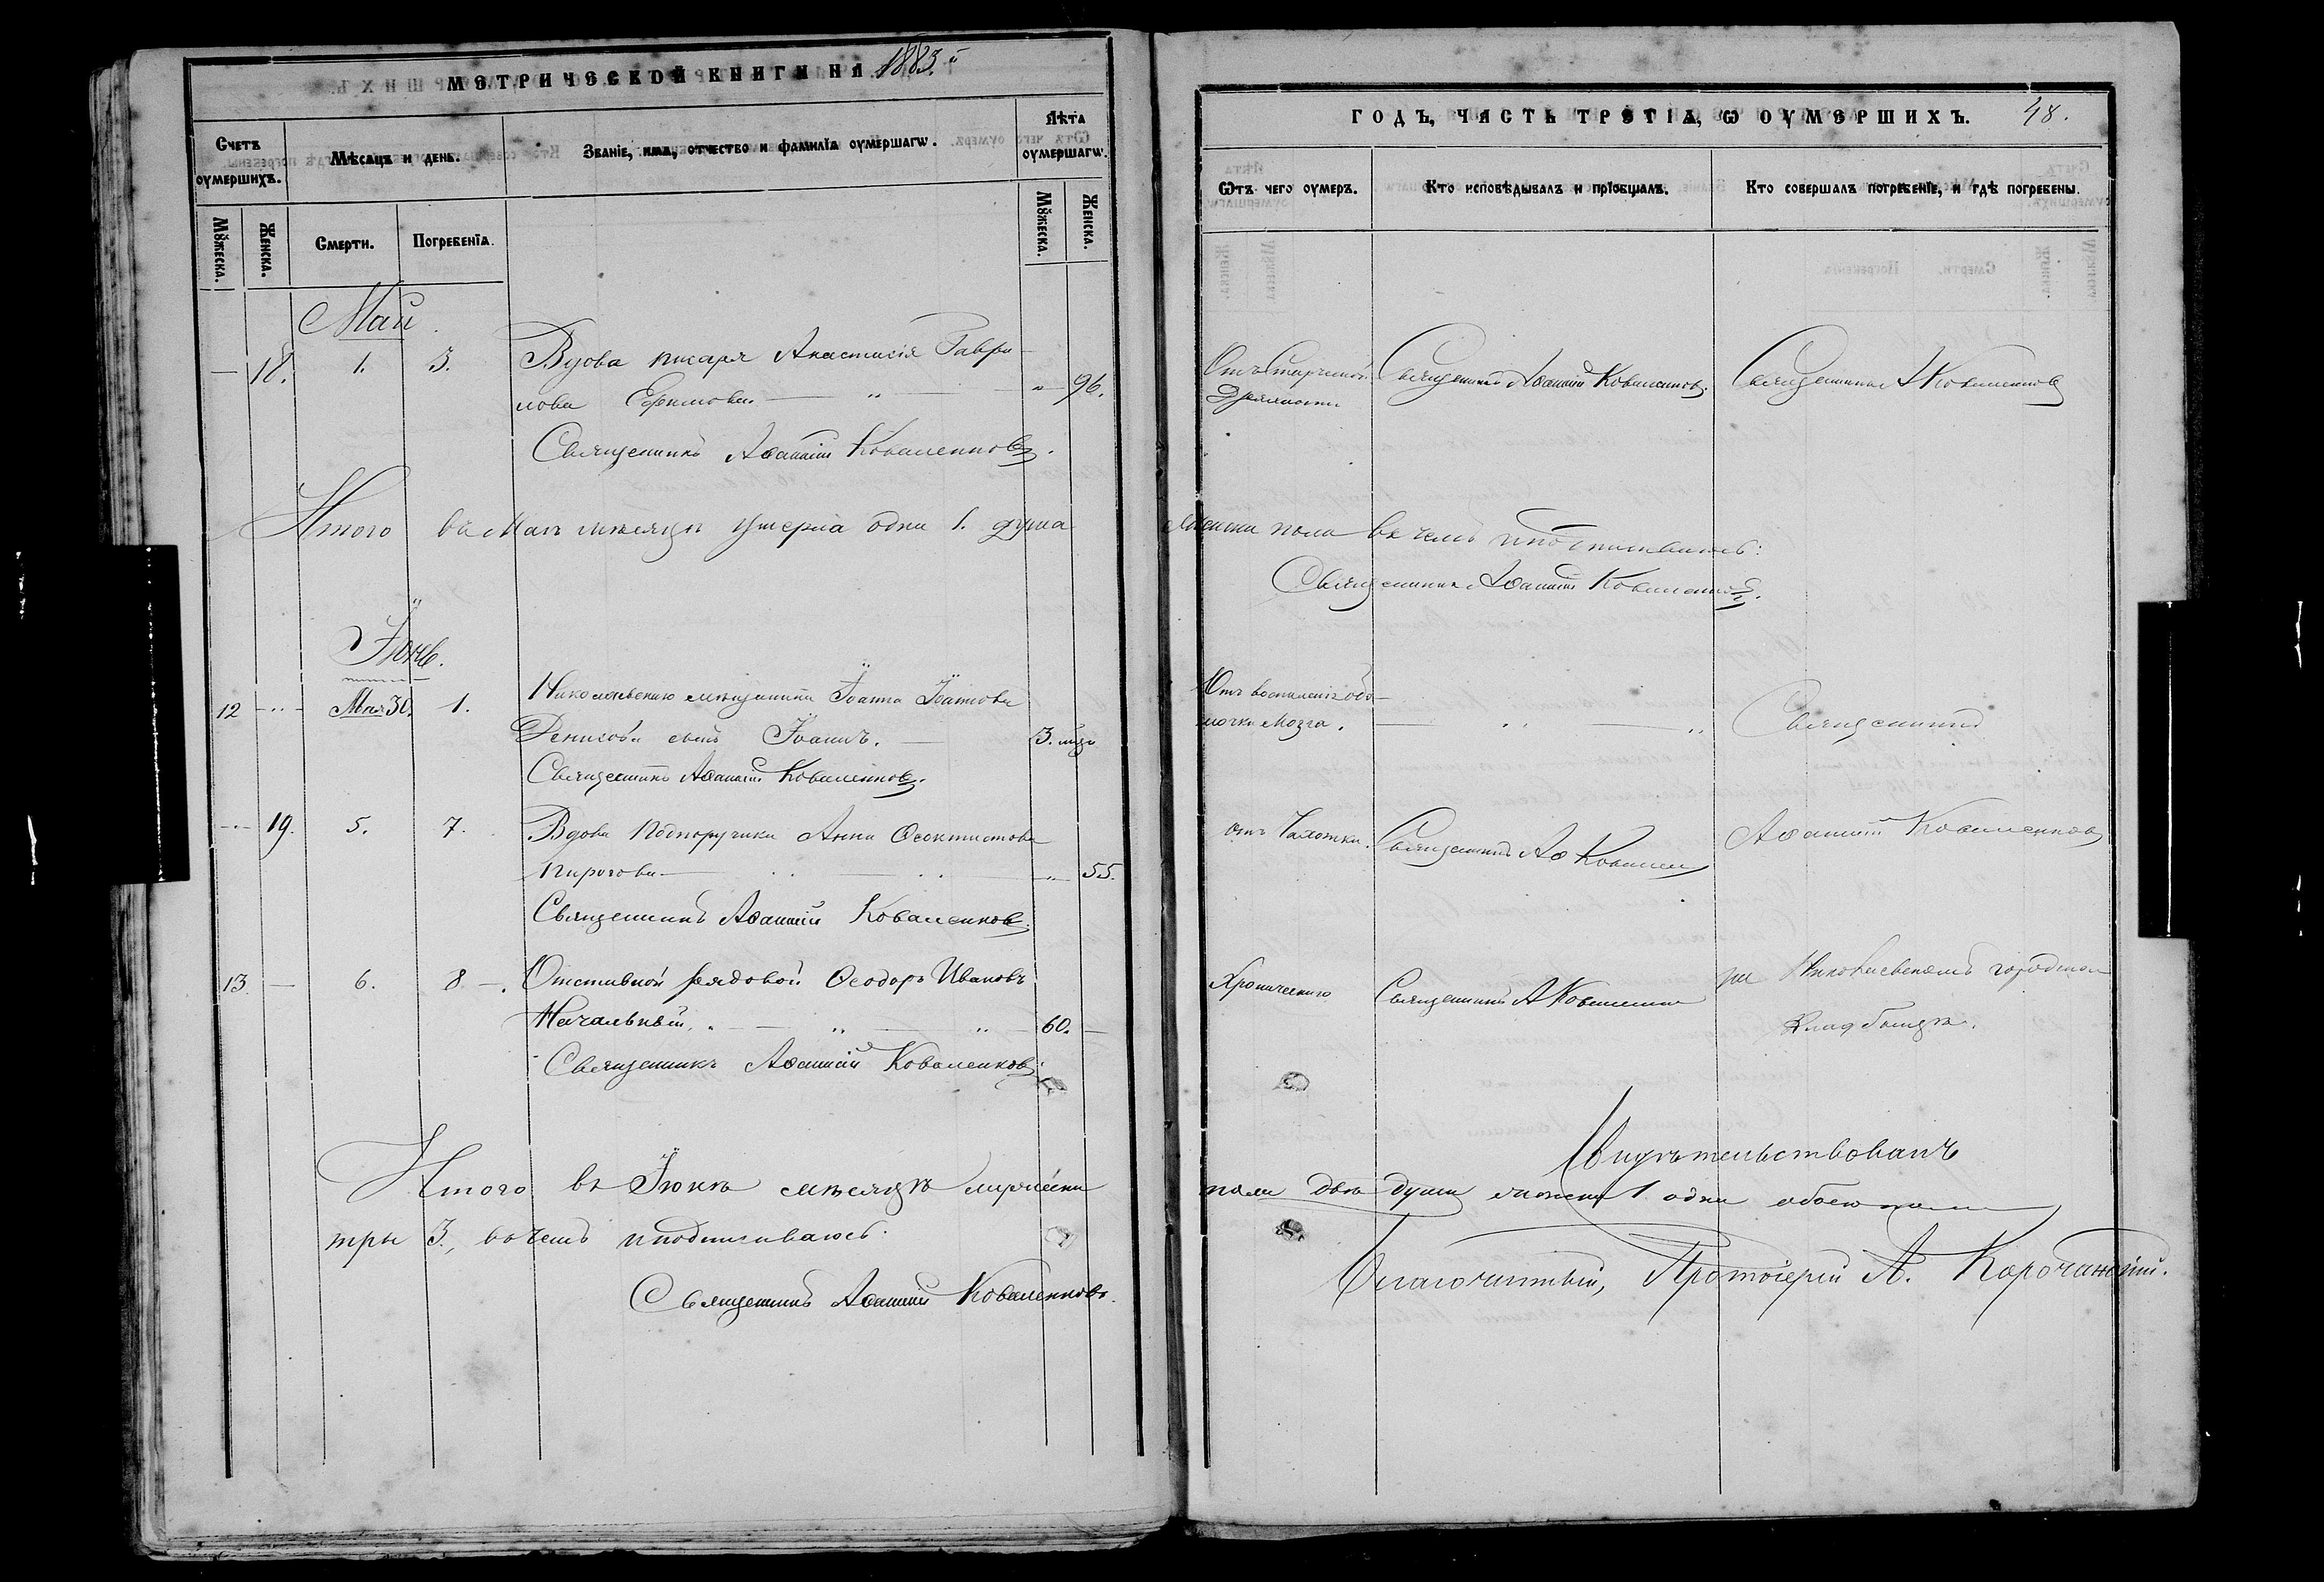 МЕТРИЧЕСКОЙ КНИГИ НА 1883.й
Счетъ оумершихъ.
Мѣсяцъ и день.
Званіе, имя, отчество и фамиліа оумершагѡ.
Лѣта оумершагѡ.
Мꙋжеска.
Женска.
Смерти.
Погребеніа.
Мꙋжеска.
Женска.
Май
— 18. 1. 3. Вдова писаря Анастасія Гаври-
лова Ефимова. — „ — „ 96.
Священникъ Аѳанасій Коваленковъ.
Итого въ Маѣ мѣсяцѣ умерла одна 1. душа
Іюнь.
12 — Мая 30. 1. Николаевскаго мѣщанина Іоанна Іоаннова
Денисова сынъ Іоаннъ. — 3. мѣс
Священникъ Аѳанасій Коваленковъ.
— 19. 5. 7. Вдова Подпоручика Анна Ѳеоктистова
Пирогова — „ 55.
Священникъ Аѳанасій Коваленковъ
13. — 6. 8 —. Отставной рядовой Ѳеодоръ Ивановъ
Начальный. — „ — „ — 60. —
Священникъ Аѳанасій Коваленковъ.
Итого въ Іюнѣ мѣсяцѣ
тры 3., въ чемъ и подписываюсь.
Священникъ Аѳанасій Коваленковъ.
ГОДЪ, ЧАСТЬ ТРЕТІА, Ѡ ОУМЕРШИХЪ. 48.
Ѿтъ чего оумеръ.
Кто исповѣдывалъ и пріобщалъ.
Кто совершалъ погребеніе, и гдѣ погребены.
Отъ Старческой Священникъ Аѳанасій Коваленковъ. Священникъ А Коваленковъ
Дряхлости
женска пола въ чемъ и подписываюсь:
Священникъ Аѳанасій Коваленковъ.
Отъ воспаленія обо-
лочки мозга. — „ — „ Священникъ
отъ Чахотки. Священникъ Аѳ Ковален Аѳанасій Коваленковъ
Хроническаго Священникъ А Коваленко на Николаевскомъ городском
Кладбищѣ.
Свидѣтельствовалъ
пола двѣ души женска 1 одна обоего пола
Благочинный, Протоіерей А. Корочанскій.